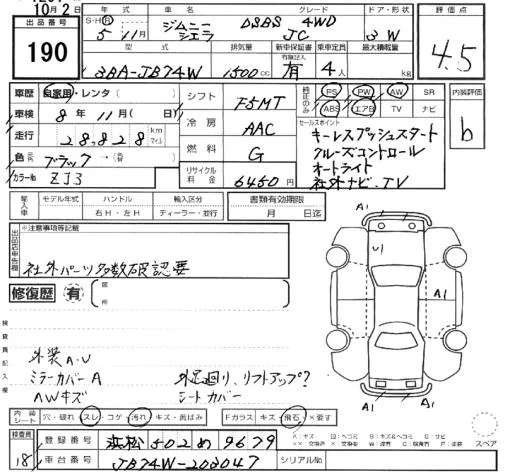 10月2
出品番号
190
年式
S・H・R
5年11月
車名
ジムニー
シエラ
グレード
DSBS 4WD
JC
ドア・形状
3 W
評価点
4.5
型式
3BA-JB74W
排気量
1500cc
新車保証書
有
乗車定員
4人
最大積載量
kg
車歴 自家用・レンタ( )
車検 8年11月( 日)
走行 28,828 km マイル
色 ブラック→
カラーNo ZJ3
シフト F5MT
冷房 AAC
燃料 G
リサイクル料金 6450円
純正のみ
PS PW AW SR
ABS エアB TV ナビ
セールスポイント
キーレスプッシュスタート
クルーズコントロール
オートライト
社外ナビ、TV
内装評価
b
輸入車
モデル年式
ハンドル
右H・左H
輸入区分
ディーラー・並行
書類有効期限
月 日迄
出品店申告欄
※注意事項等記載
社外パーツ多数確認要
修復歴 有
箇所
検査員記入欄
外装A.U
ミラーカバーA
AWキズ
外足廻り、リフトアップ?
シートカバー
A1
A1
U1
A1
A1
A1
内装シート
穴・破れ・スレ・コゲ・汚れ・キズ・黄ばみ
Fガラス キズ・飛石・×要す
スペア
検査員
18
登録番号 浜松502め9679
車台番号 JB74W-203047
シリアルNo